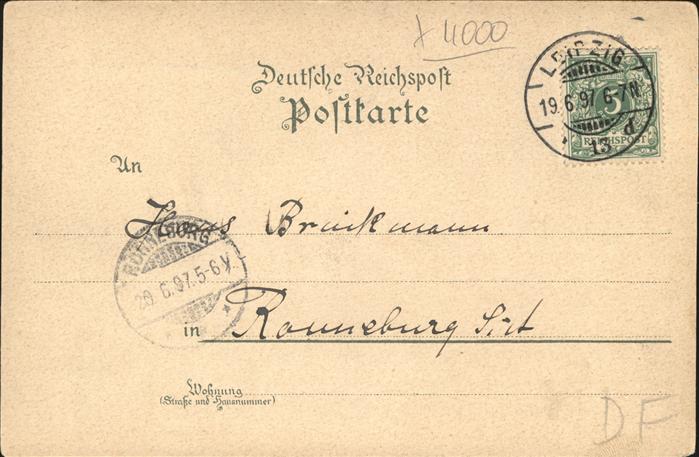 x 4000
Deutsche Reichspost
Postkarte
LEIPZIG
19.6.97 6-7N
13 d
5
REICHSPOST
An
Hans Brückmann
RONNEBURG
20.6.97.5-6V.
in Ronneburg S/A
Wohnung
(Straße und Hausnummer)
DF